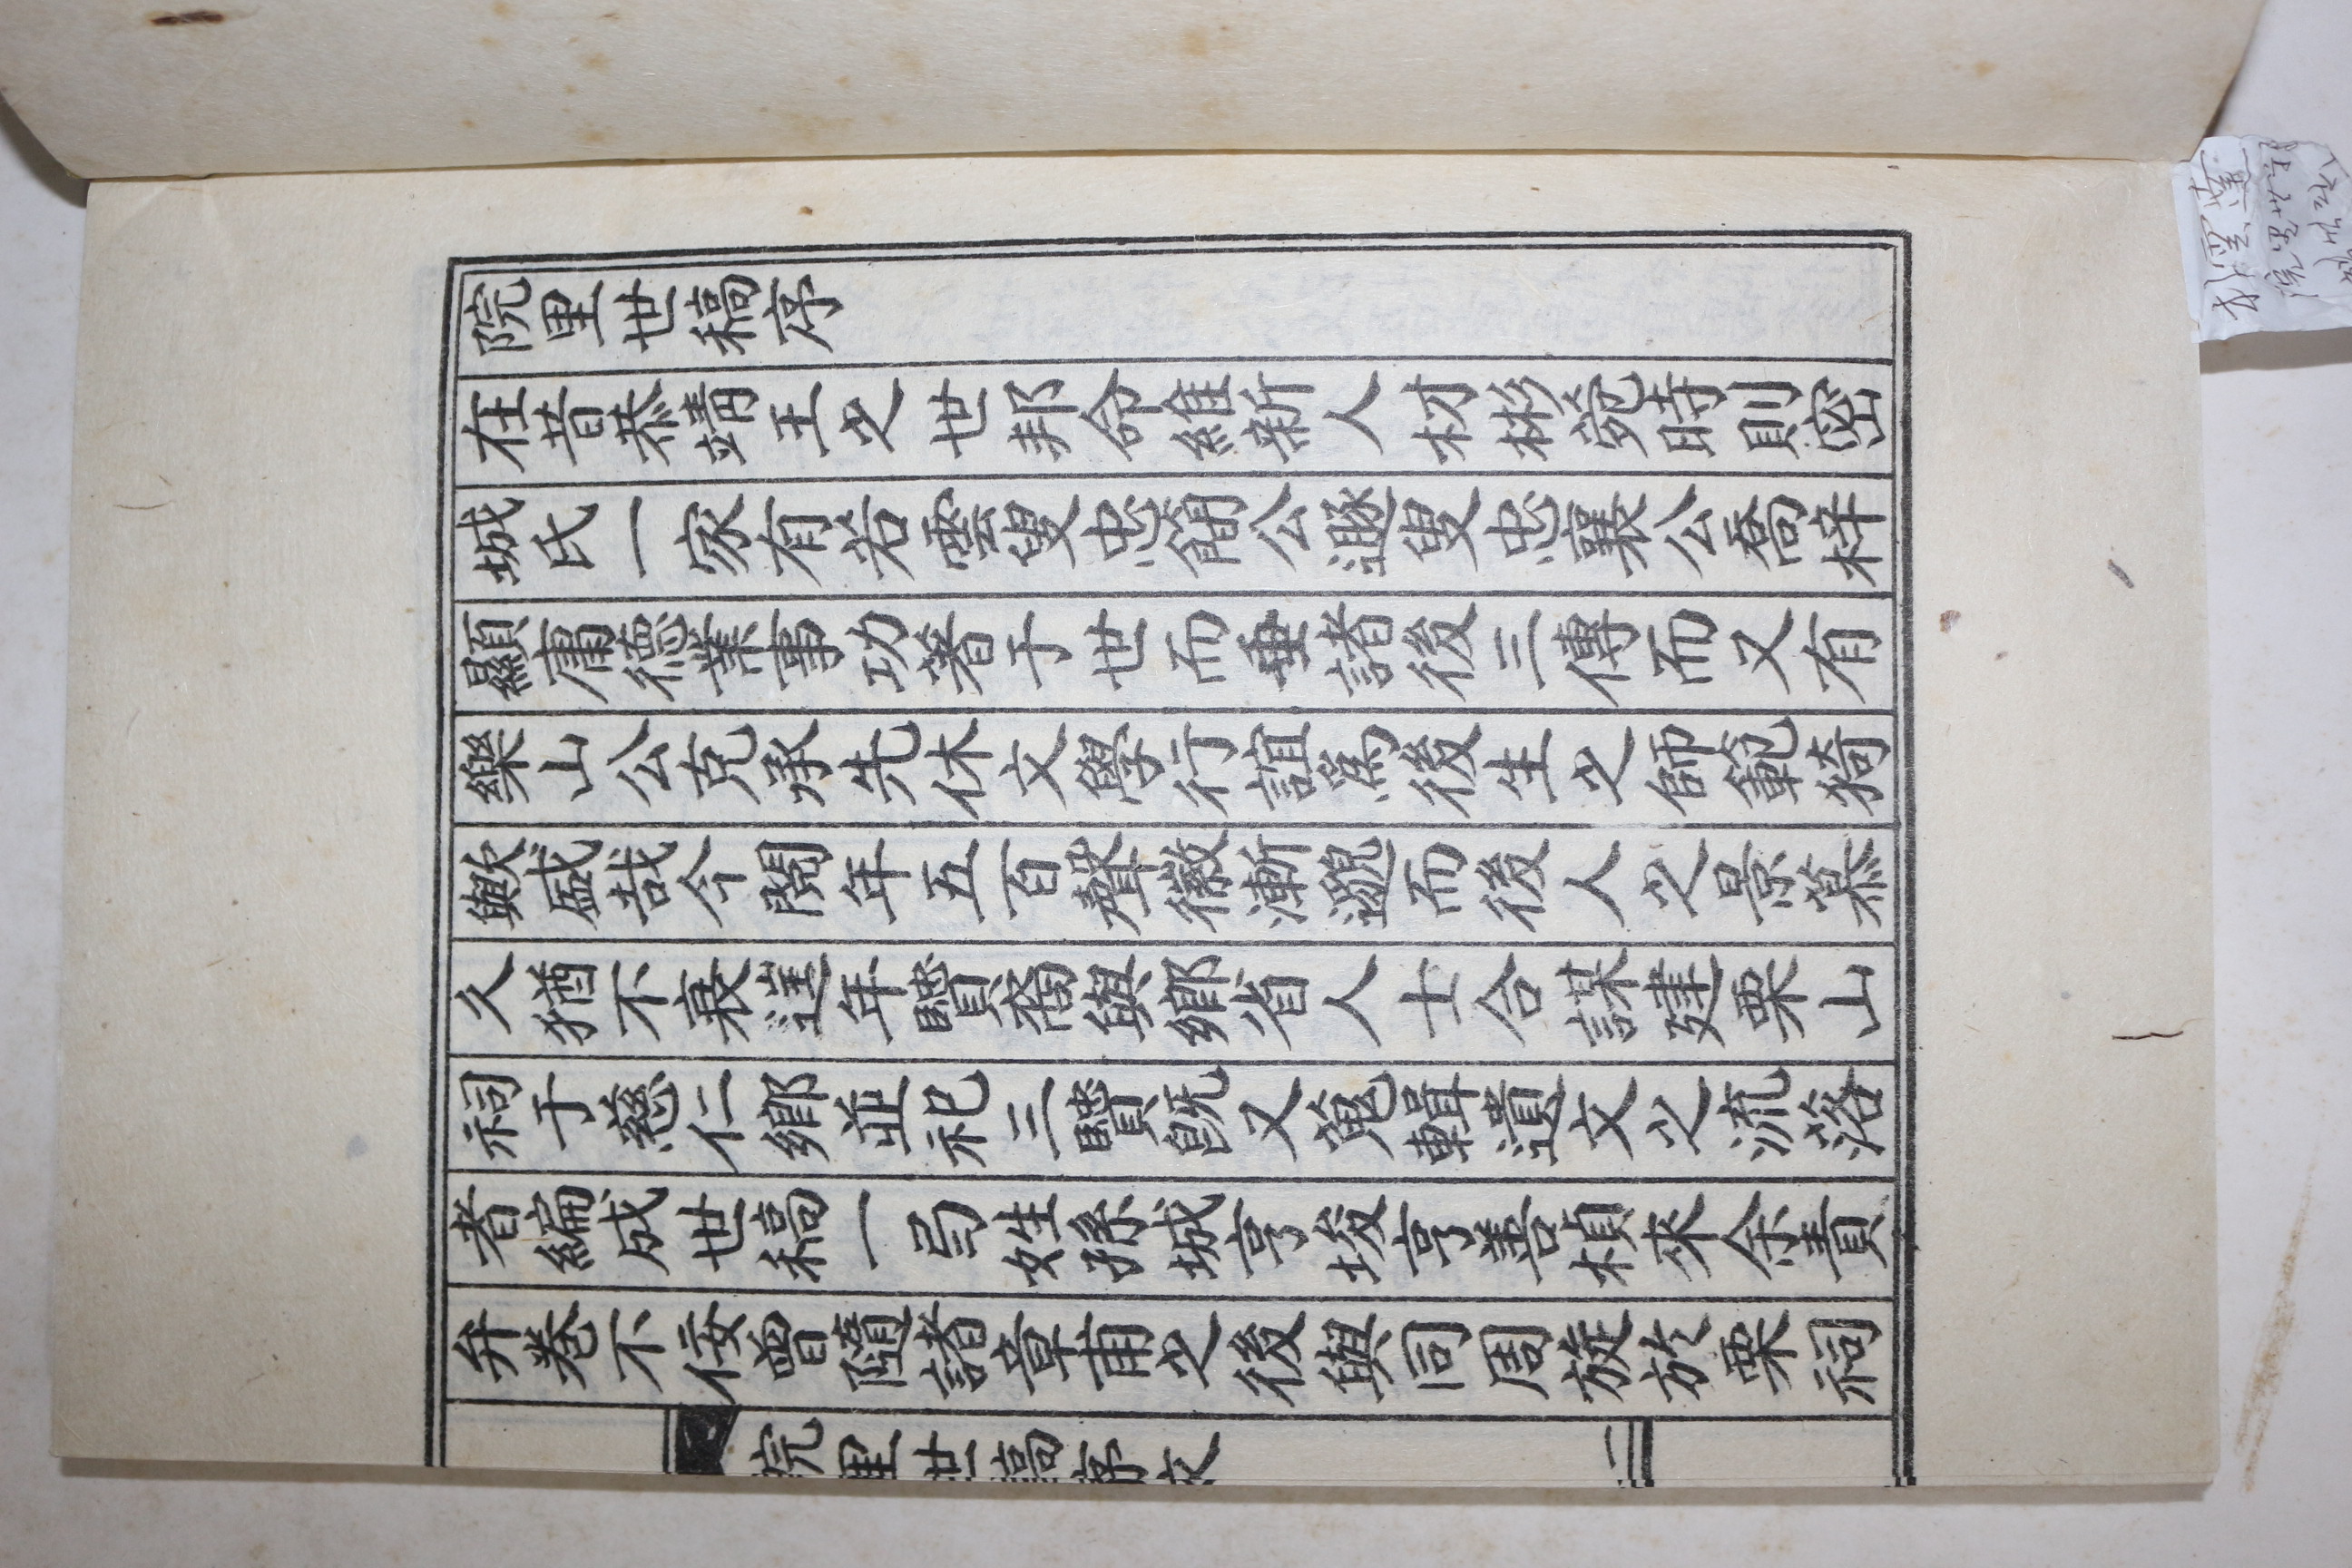 院里世稿序
在昔恭靖王之世邦命維新人材彬時則密
城氏一家有若叟忠簡公遯叟忠襄公喬梓
顯庸德業事功著于世而垂諸後三傳而又有
樂山公克承先休文學行誼爲後生之師範猗
歟盛哉今閱年五百聲徽漸邈而後人之景慕
久猶不衰年賢裔與鄕省人士合謀建栗山
祠于慈仁鄕並祀三賢旣又蒐輯遺文之流落
者編成世稿一弓姓孫城亨埈亨善楨來余責
弁卷不佞曾隨諸章甫之後與同周旋於栗祠
院里世稿序文 一